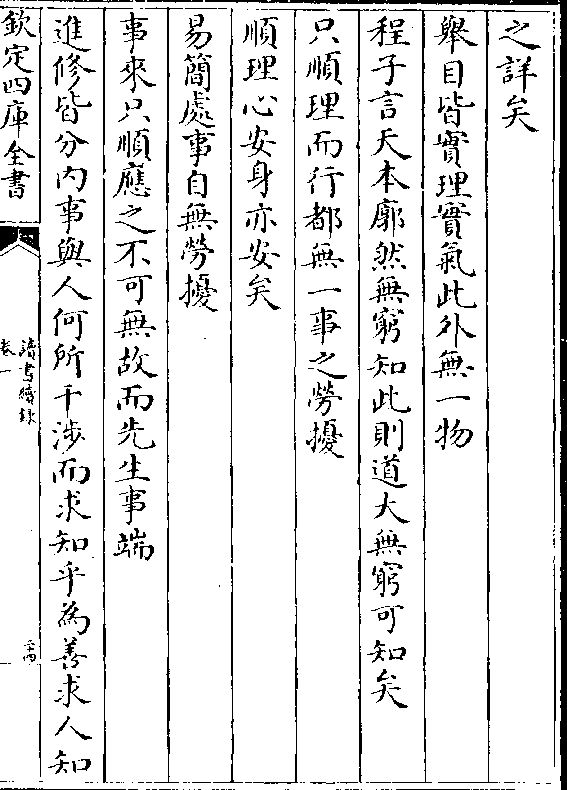 之詳矣
舉目皆實理實氣此外無一物
程子言天本廓然無窮知此則道大無窮可知矣
只順理而行都無一事之勞擾
順理心安身亦安矣
易簡處事自無勞擾
事來只順應之不可無故而先生事端
進修皆分内事與人何所干涉而求知乎為善求人知
欽定四庫全書
讀書續錄
卷一